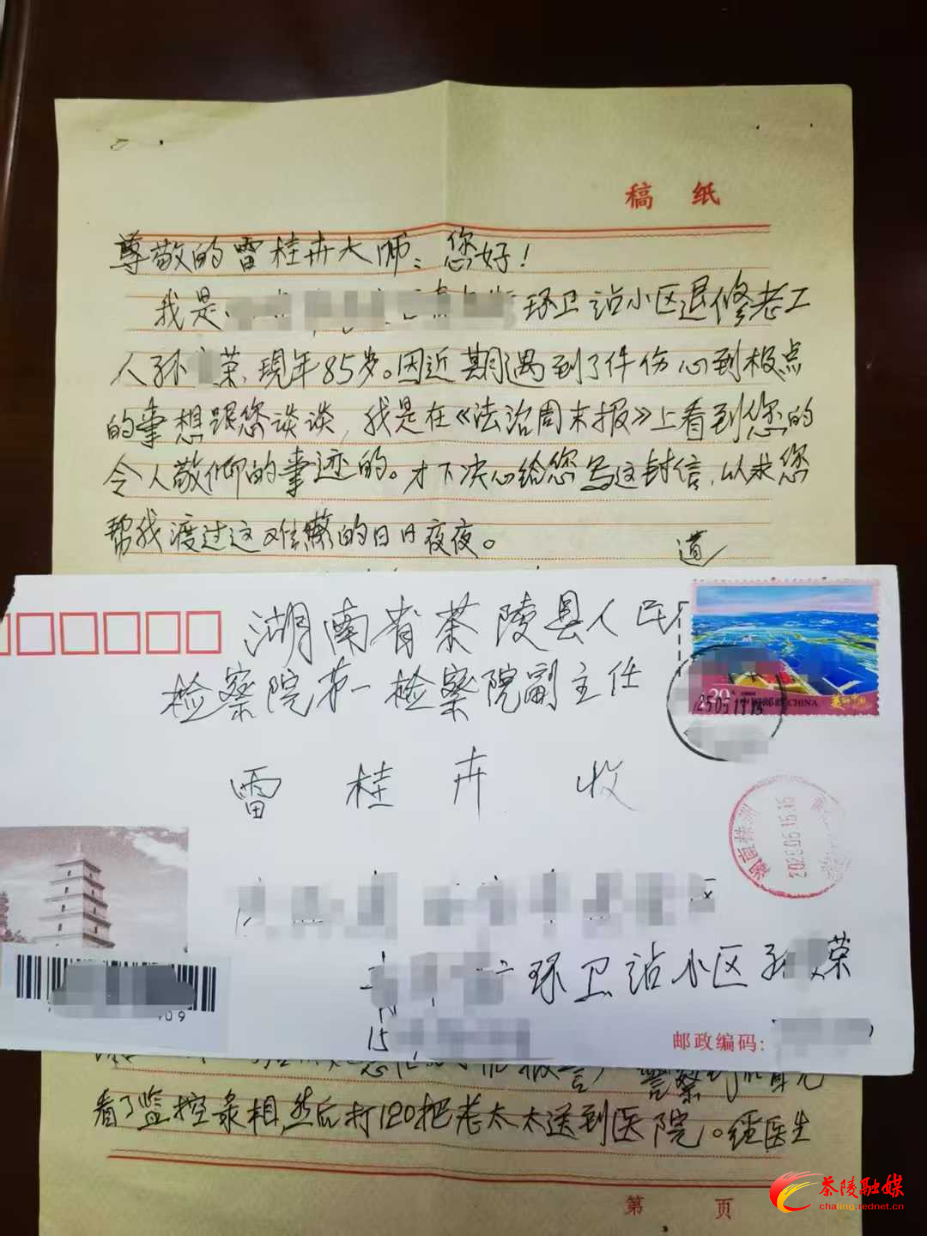 稿 纸
尊敬的雷桂卉大师：您好！
我是 环卫站小区退修老工
人孙 荣，现年85岁。因近期遇到了件伤心到极点
的事想跟您谈谈，我是在《法治周末报》上看到您的
令人敬仰的事迹的。才下决心给您写这封信，以求您
帮我渡过这难 的日日夜夜。
道
湖南省茶陵县人民
检察院第一检察院副主任
雷桂卉 收
环卫站小区孙 荣
15
邮政编码：
09
20
中国邮政 CHINA
湖南株洲
2025.05.15.15
警察到
看了监控录相，然后打120把老太太送到医院。经医生
第 页
茶陵融媒
chaling.rednet.cn